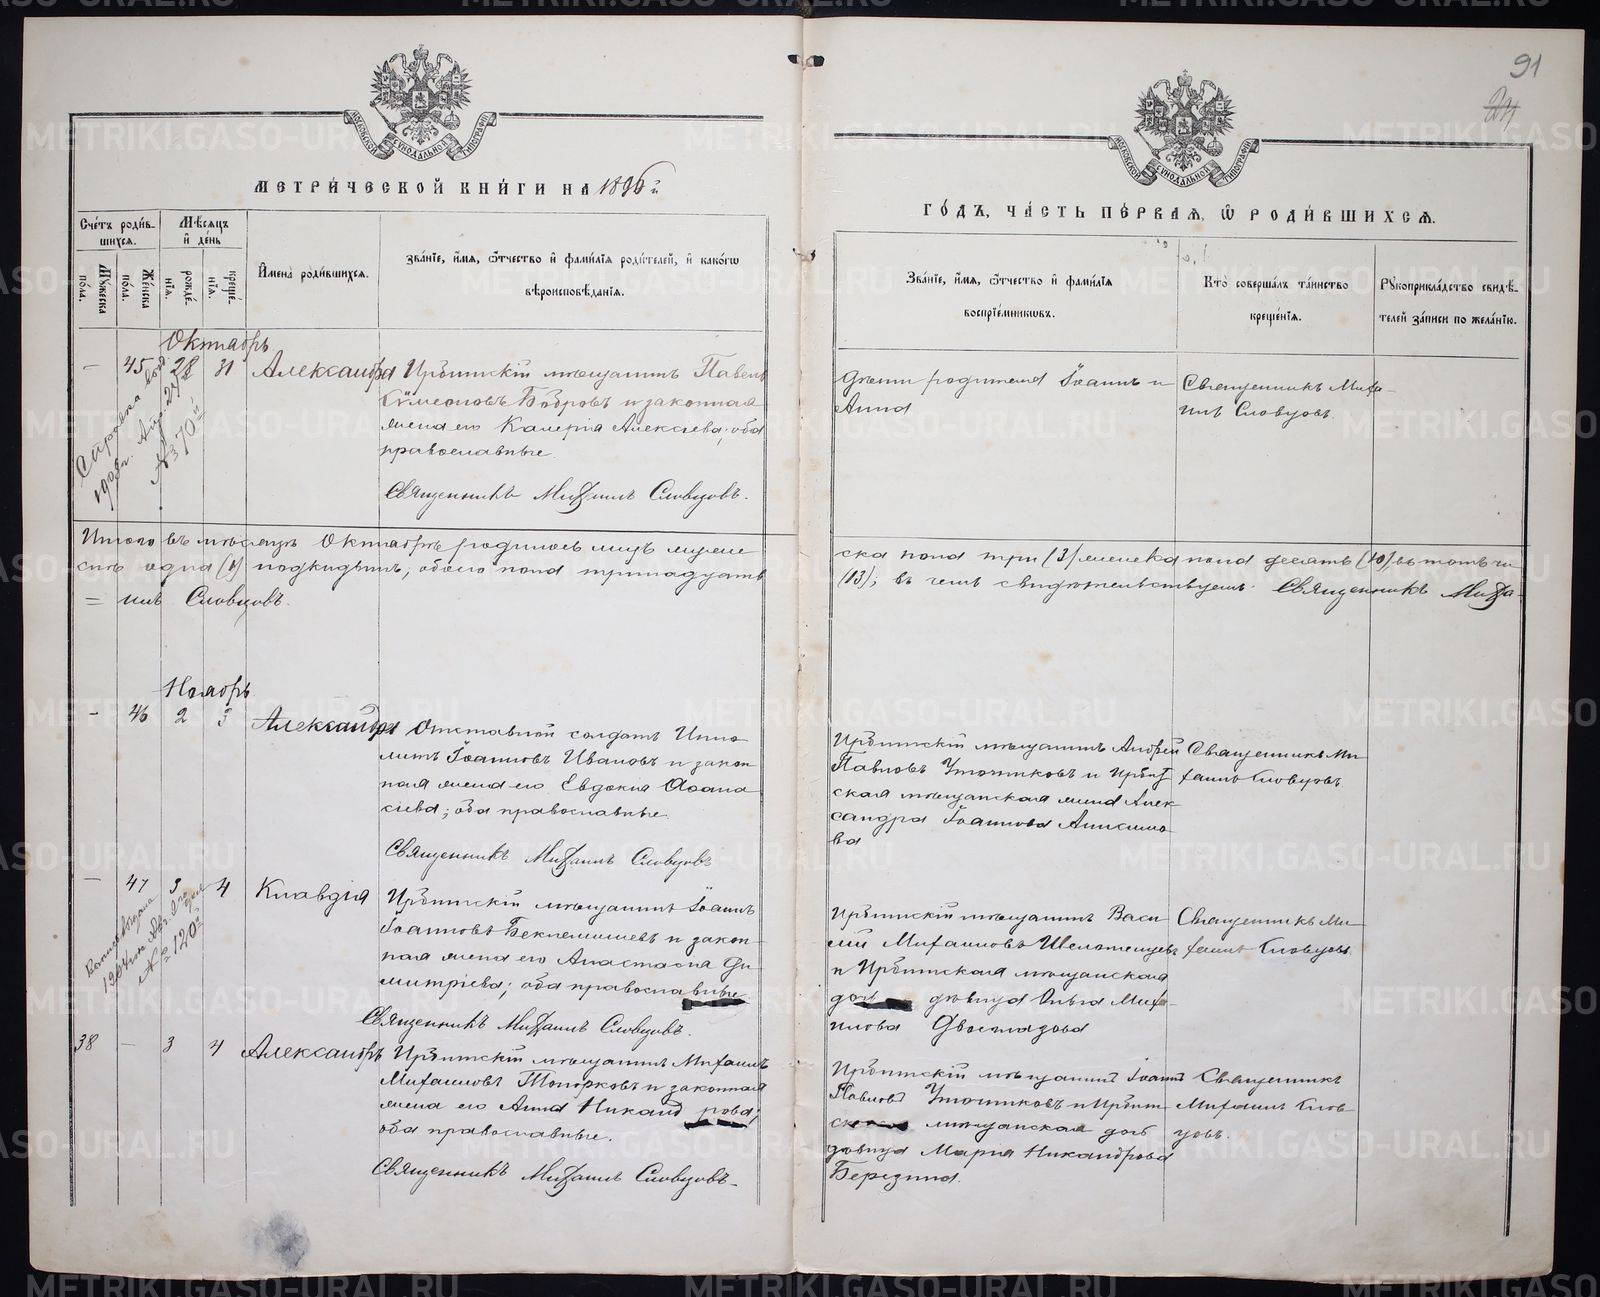 METRIKI.GASO-URAL.RU
91
24
МОСКОВСКОЙ СѴНОДАЛЬНОЙ ТИПОГРАФІИ
МЕТРИ́ЧЕСКОЙ КНИ́ГИ НА 1896 г.
Сче́тъ роди́в-
шихся.
Мѣсяцъ
и҆ де́нь
Мꙋжеска пола.
Женска пола.
рожде́-
нія.
креще́-
нія.
И҆мена̀ роди́вшихся.
Зва́ніе, и҆́мя, ѻ҆́тчество и҆ фами́лія роди́телей, и҆ како́гѡ
вѣроисповѣ́данія.
Октябрь
— 45 28 31 Александра Ирбитскій мѣщанинъ Павелъ
Сѵмеоновъ Бобровъ и законная
жена его Калерія Алексіева; оба
православные.
Священникъ Михаилъ Словцовъ.
Справка
1903 г.
№ 370
Итого въ мѣсяцѣ Октябрѣ родилось лицъ муже
слѣ одна (1) подкидышъ; обоего пола тринадцать
= илъ Словцовъ.
Ноябрь
— 46 2 3 Александра Отставной солдатъ Иппо
литъ Іоанновъ Ивановъ и закон
ная жена его Евдокія Аѳана
сіева; оба православные.
Священникъ Михаилъ Словцовъ
— 47 3 4 Клавдія Ирбитскій мѣщанинъ Іоаннъ
Іоанновъ Беклемишевъ и закон-
ная жена его Анастасія Ди-
митріева; оба православные
Священникъ Михаилъ Словцовъ.
1904
№ 120
38 — 3 4 Александръ Ирбитскій мѣщанинъ Михаилъ
Михаиловъ Топорковъ и законная
жена его Анна Никандрова;
оба православные.
Священникъ Михаилъ Словцовъ.
МОСКОВСКОЙ СѴНОДАЛЬНОЙ ТИПОГРАФІИ
ГО́ДЪ, ЧА́СТЬ ПЕ́РВАЯ, Ѽ РОДИ́ВШИХСЯ.
Зва́ніе, и҆́мя, ѻ҆́тчество и҆ фами́лія
воспріе́мникѡвъ.
Кто̀ соверша́лъ та́инство
креще́нія.
Рꙋкоприкла́дство свидѣ́-
телей за́писи по жела́нію.
Дѣти родителя Іоаннъ и
Анна
Священникъ Миха-
илъ Словцовъ.
ска пола три (3) женска пола десять (10) въ томъ чи
(13); въ чемъ свидѣтельствуемъ. Священникъ Миха-
Ирбитскій мѣщанинъ Андрей
Павловъ Утотиковъ и Ирбит
ская мѣщанская жена Алек
сандра Іоаннова Анисимо
ва
Священникъ Ми
хаилъ Словцовъ
Ирбитскій мѣщанинъ Васи
лій Михаиловъ
и Ирбитская мѣщанская
дочь дѣвица Ольга Миха-
илова
Священникъ Ми-
хаилъ Словцовъ.
Ирбитскій мѣщанинъ Іоаннъ
Павловъ Утотиковъ и Ирбит
ская мѣщанская дочь
дѣвица Марія Никандрова
Березина.
Священникъ
Михаилъ Слов
цовъ.